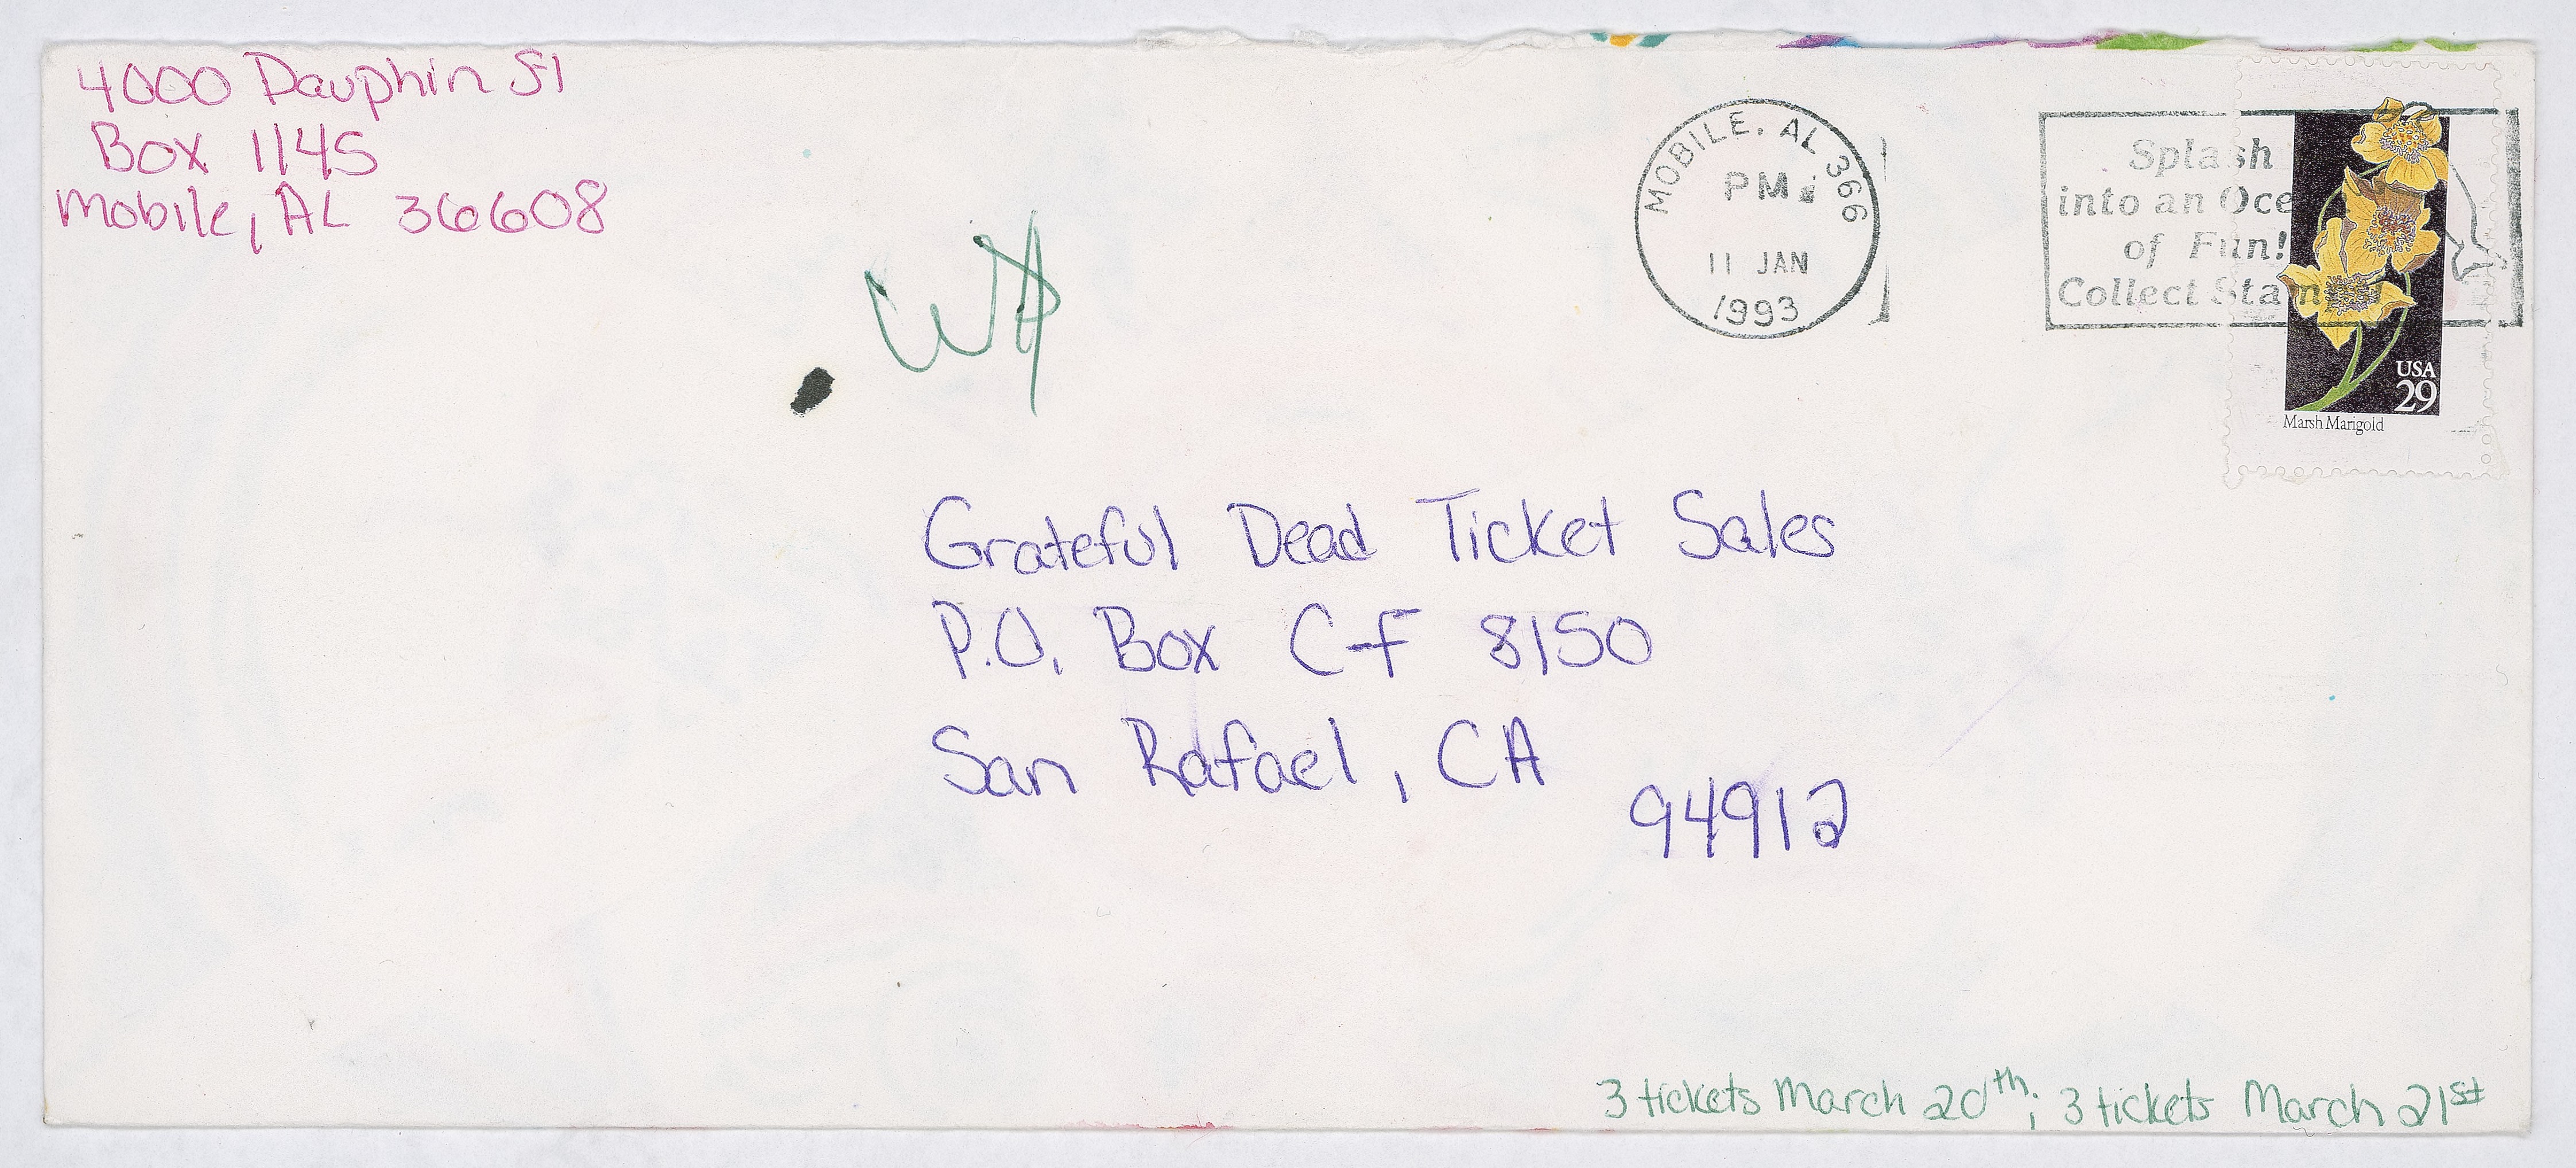 4000 Dauphin St
Box 1145
Mobile, AL 36608
MOBILE, AL 366
PM
11 JAN
1993
Splash
into an Oce
of Fun!
Collect Stam
USA
29
Marsh Marigold
Grateful Dead Ticket Sales
P.O. Box C-F 8150
San Rafael, CA
94912
3 tickets March 20th; 3 tickets March 21st